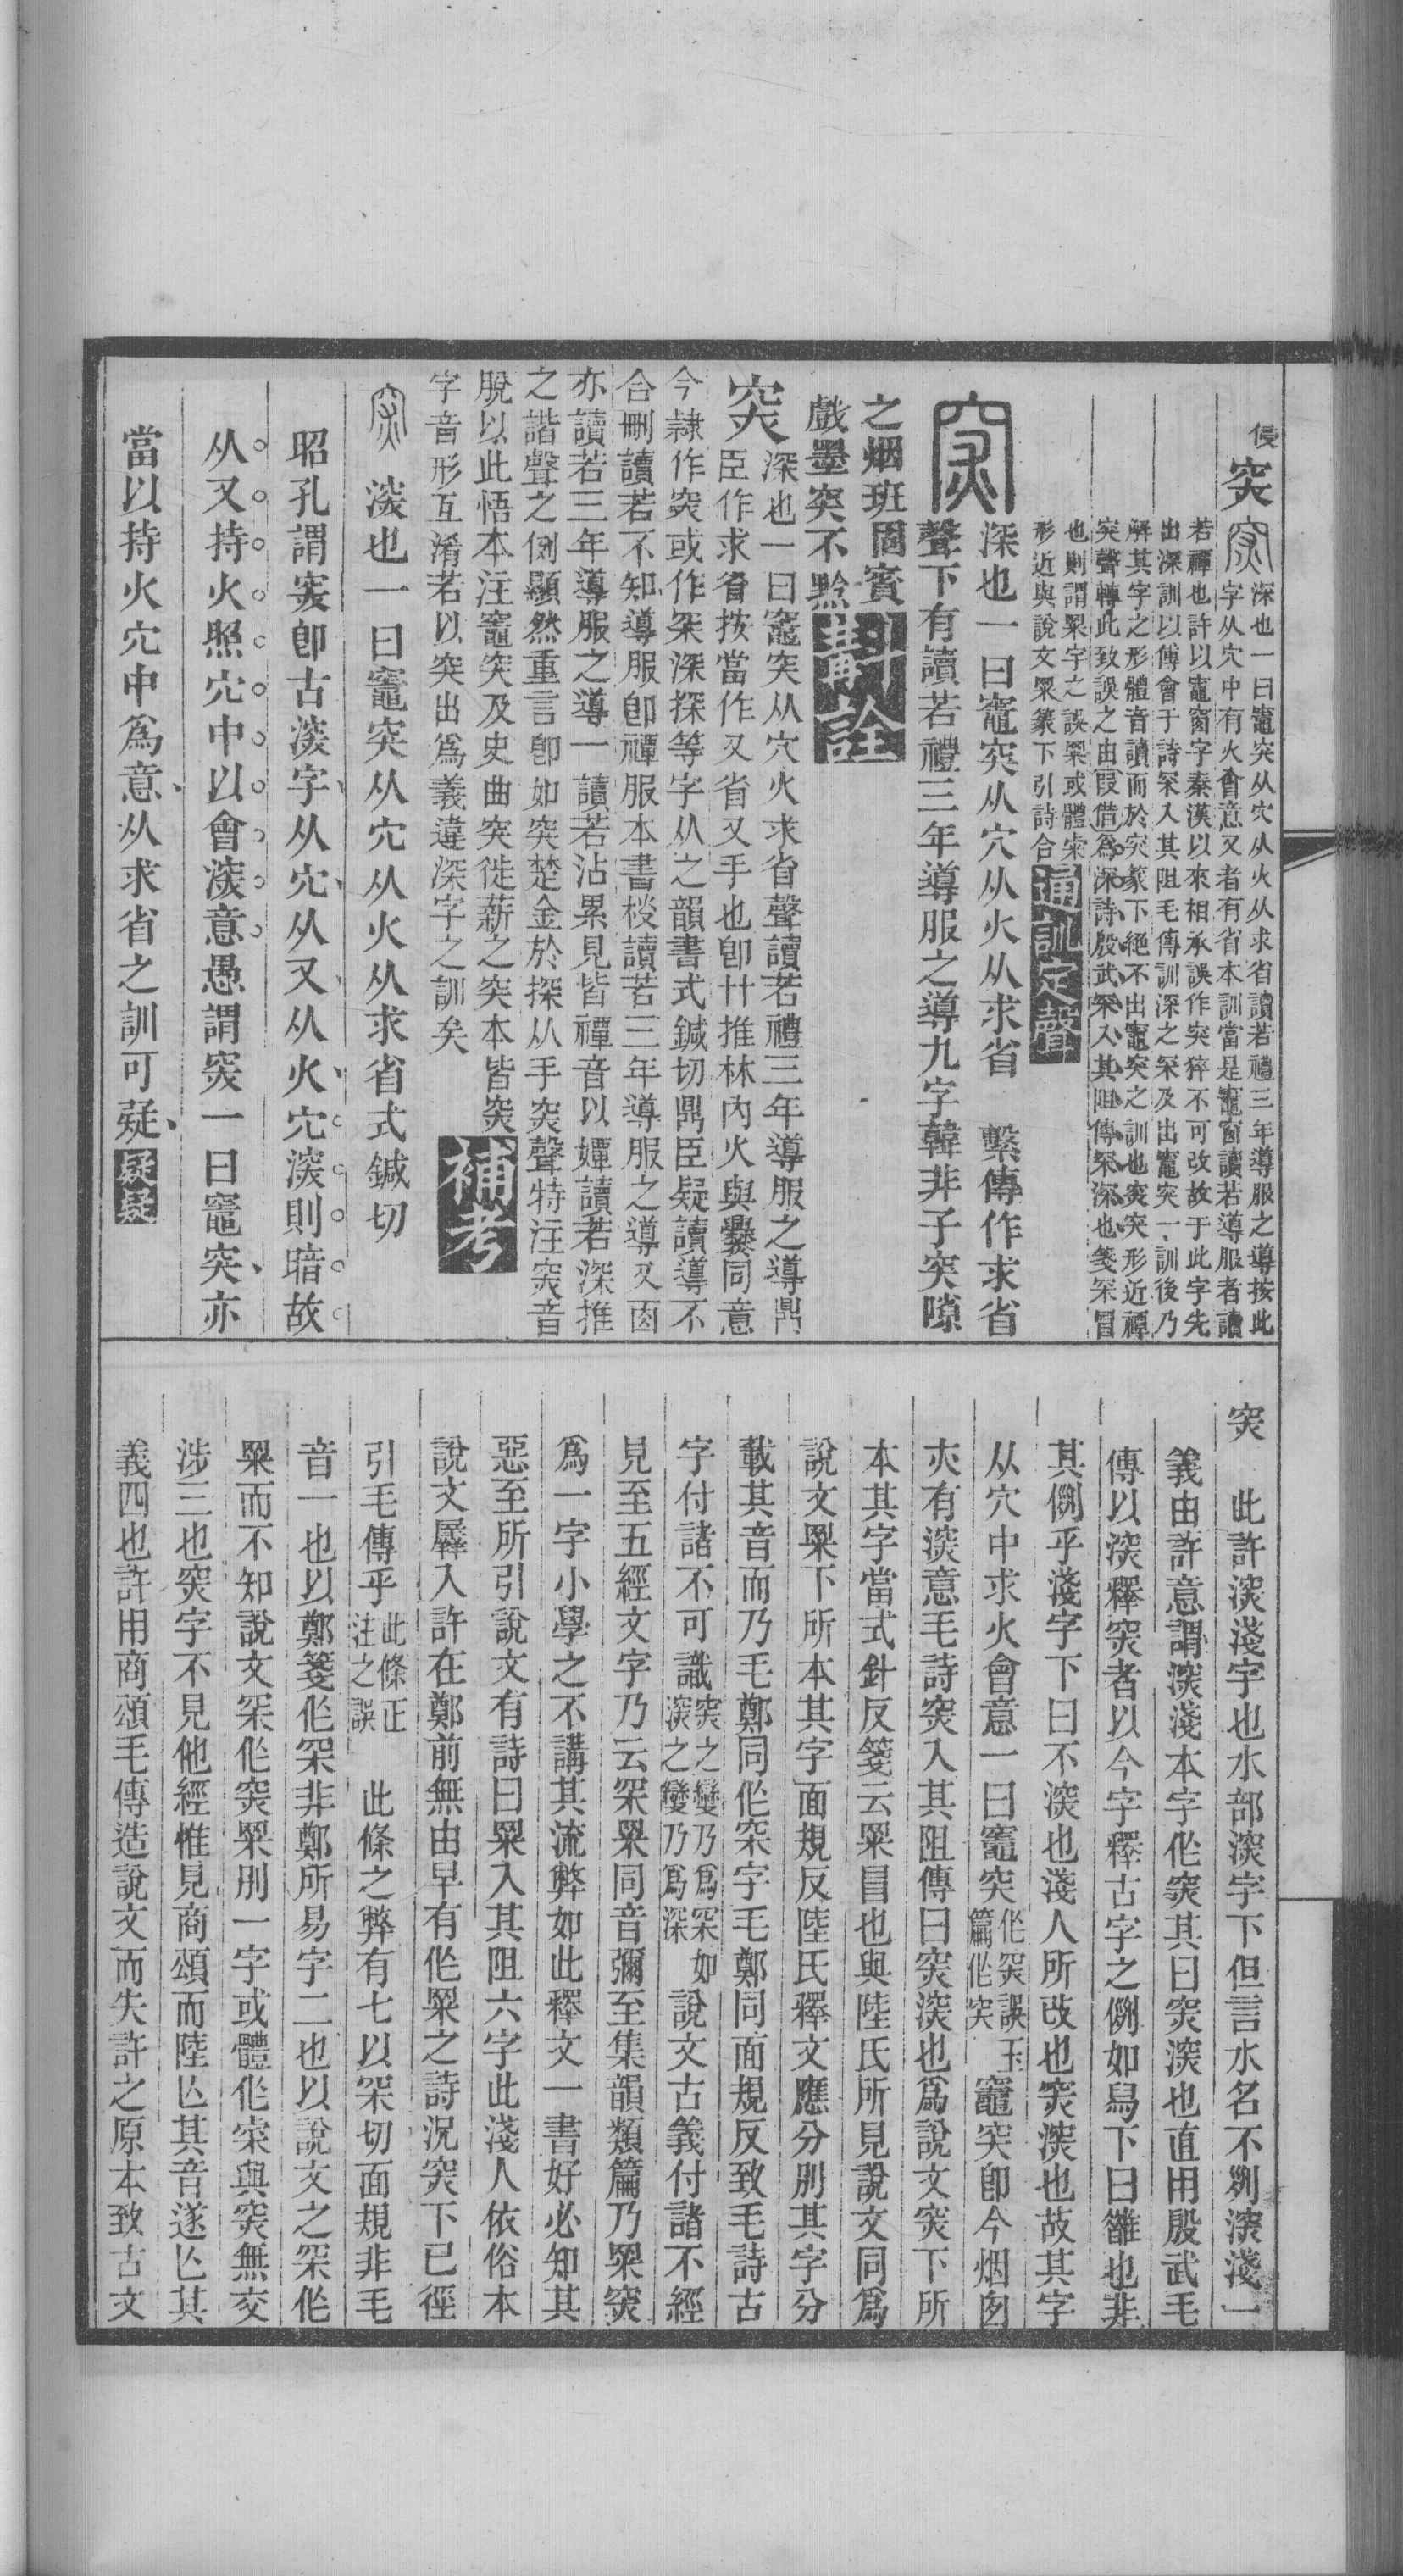 侵
突
深也一曰竈突从穴从火从求省讀若禮三年導服之導按此
字从穴中有火會意又者有省本訓當是竈窗讀若導服者讀
若禫也許以竈窗字秦漢以來相承誤作突猝不可改故于此字先
出深訓以傅會于詩罙入其阻毛傳訓深之罙及出竈突一訓後乃
解其字之形體音讀而於突篆下絕不出竈突之訓也突突形近禫
突聲轉此致誤之由叚借為深詩殷武罙入其阻傳罙深也箋罙冒
也則謂冞字之誤冞或體
形近與說文冞篆下引詩合
通訓定聲
深也一曰竈突从穴从火从求省　繫傳作求省
聲下有讀若禮三年導服之導九字韓非子突隙
之烟班固賓
戲墨突不黔
斠詮
突深也一曰竈突从穴火求省聲讀若禮三年導服之導鼎
臣作求省按當作又省又手也卽廾推林內火與爨同意
今隷作突或作罙深探等字从之韻書式鍼切鼎臣疑讀導不
合刪讀若不知導服卽禫服本書棪讀若三年導服之導㕡
亦讀若三年導服之導一讀若沾累見皆禫音以嬋讀若深推
之諧聲之例顯然重言卽如突楚金於探从手突聲特注突音
脫以此悟本注竈突及史曲突徙薪之突本皆突
字音形互淆若以突出爲義違深字之訓矣
補考
深也一曰竈突从穴从火从求省式鍼切
昭孔謂突卽古深字从穴从又从火穴深則暗故
从又持火照穴中以會深意愚謂突一曰竈突亦
當以持火穴中爲意从求省之訓可疑
疑疑
突　此許深淺字也水部深字下但言水名不別深淺一
義由許意謂深淺本字作突其曰突深也直用殷武毛
傳以深釋突者以今字釋古字之例如舄下曰䧿也非
其例乎淺字下曰不深也淺人所改也突深也故其字
从穴中求火會意一曰竈突作突誤玉篇作突竈突卽今烟囪
夾有深意毛詩突入其阻傳曰突深也爲說文突下所
本其字當式針反箋云冞冒也與陸氏所見說文同爲
說文冞下所本其字面規反陸氏釋文應分別其字分
載其音而乃毛鄭同作罙字毛鄭同面規反致毛詩古
字付諸不可識突之變乃爲罙如深之變乃爲深說文古義付諸不經
見至五經文字乃云罙冞同音彌至集韻類篇乃冞突
爲一字小學之不講其流弊如此釋文一書好必知其
惡至所引說文有詩曰冞入其阻六字此淺人依俗本
說文羼入許在鄭前無由早有作冞之詩況突下已徑
引毛傳乎此條正注之誤　此條之弊有七以罙切面規非毛
音一也以鄭箋作罙非鄭所易字二也以說文之罙作
冞而不知說文罙作突冞別一字或體作𥥍與突無交
涉三也突字不見他經惟見商頌而陸亾其音遂亾其
義四也許用商頌毛傳造說文而失許之原本致古文